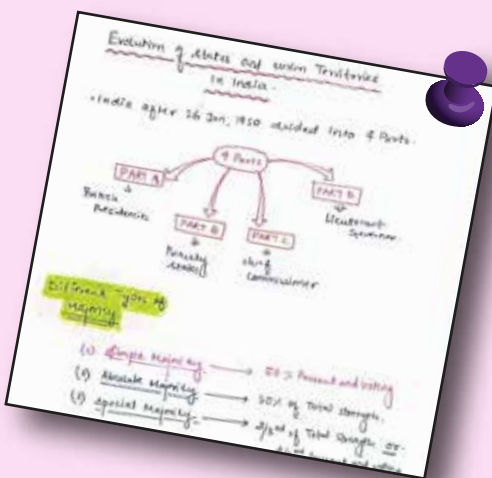 Evolution of States and union Territories
in India.
• India after 26 Jan, 1950 divided into 4 Parts.
4 Parts
PART A
British
Presidencies
PART B
Princely
States
PART C
chief
Commissioner
PART D
Lieutenant
Governor
Different Types of
Majority
Simple Majority → 50% Present and voting
Absolute Majority → 50% of Total strength.
Special Majority → 2/3rd of Total Strength or
present and voting